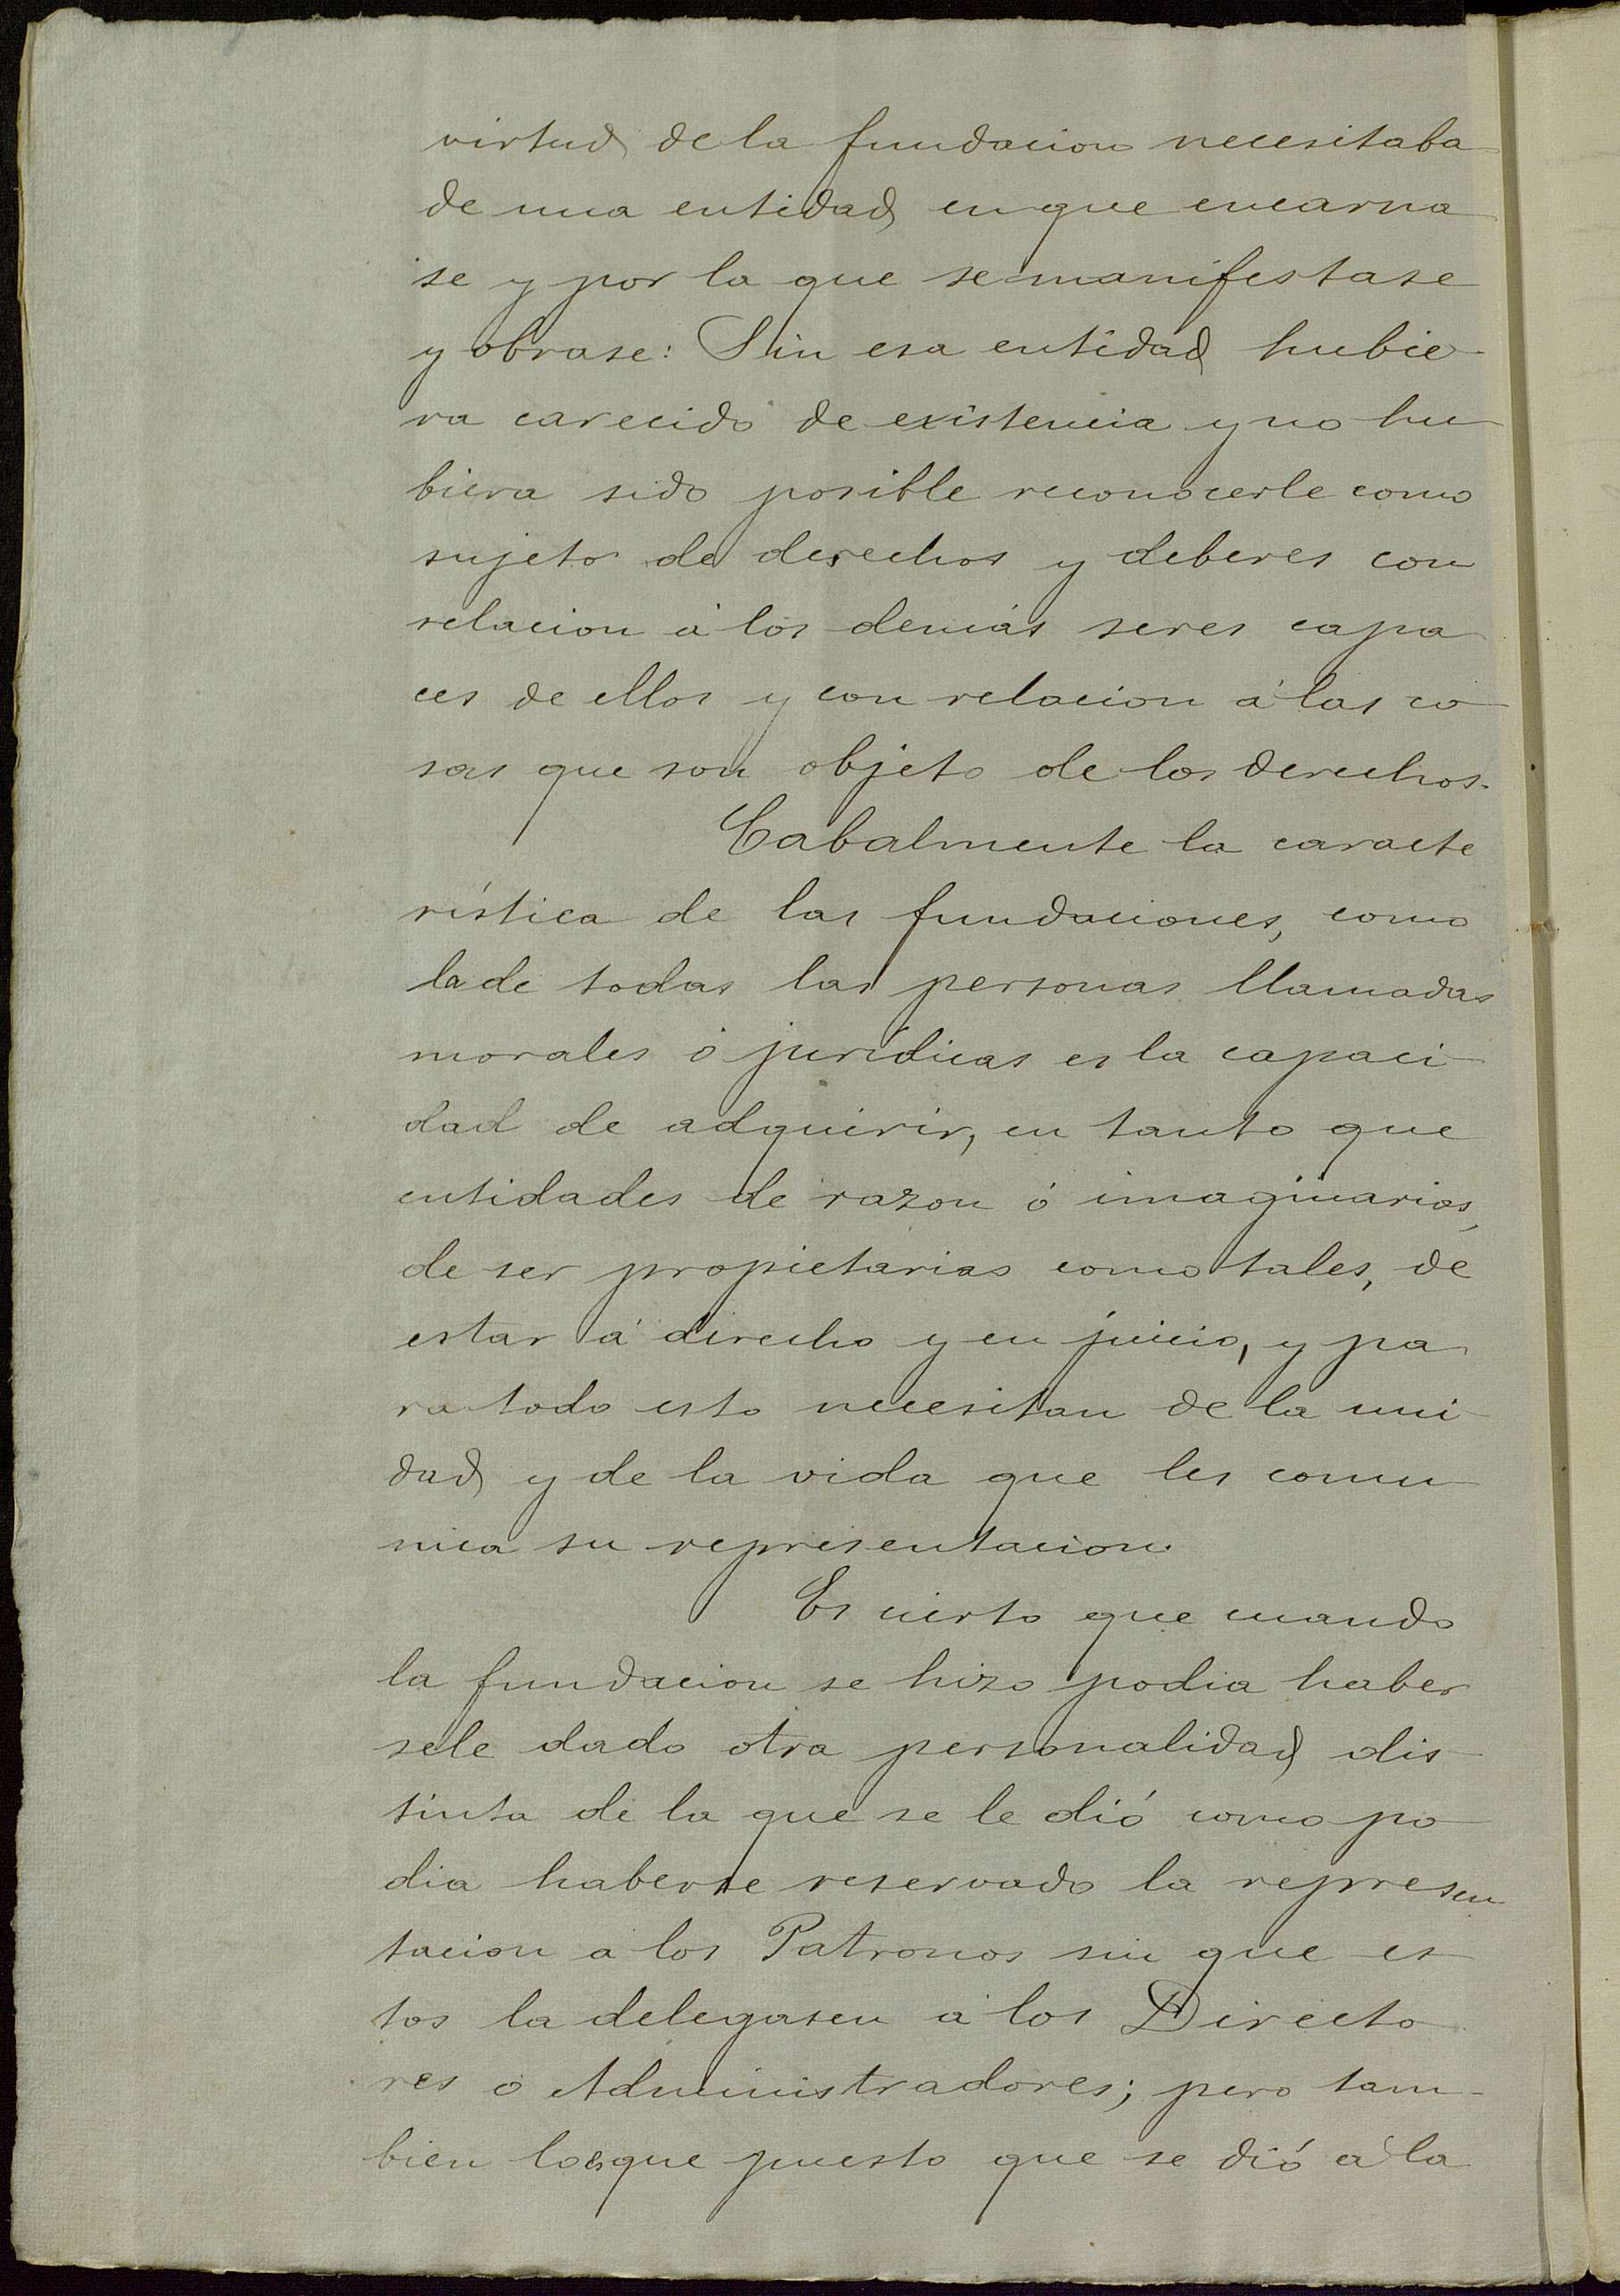 virtud de la fundacion necesitaba
de una entidad en que encarna
se y por la que se manifestase
y obrase: Sin esa entidad hubie-
ra carecido de existencia y no hu
biera sido posible reconocerle como
sujeto de derechos y deberes con
relacion á los demás seres capa
ces de ellos y con relacion á las co
sas que son objeto de los derechos.
Cabalmente la caracte
rística de las fundaciones, como
la de todas las personas llamadas
morales ó jurídicas es la capaci-
dad de adquirir, en tanto que
entidades de razon ó imaginarias,
de ser propietarias como tales, de
estar á derecho y en juicio, y pa
ra todo esto necesitan de la uni-
dad y de la vida que les comu
nica su representacion.
Es cierto que cuando
la fundacion se hizo podia haber
sele dado otra personalidad dis-
tinta de la que se le dió como po
dia haberse reservado la represen
tacion a los Patronos sin que es
tos la delegasen á los Directo
res ó Administradores; pero tam-
bien lo es que puesto que se dió á la